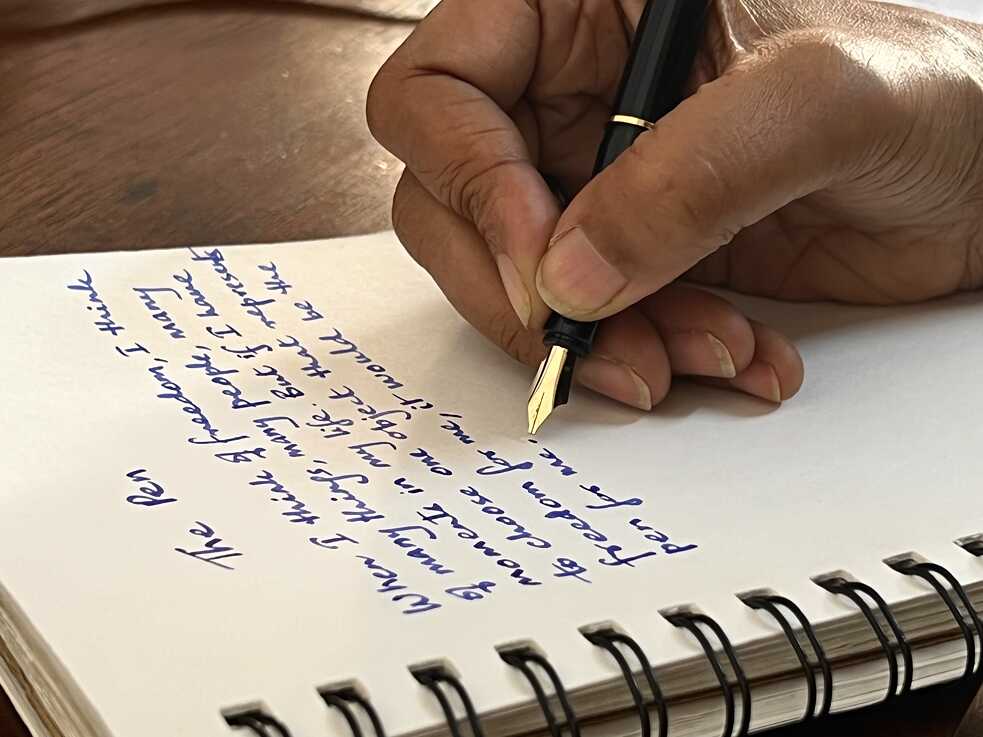 The Pen
When I think of freedom, I think
of many things, many people, many
moments in my life. But if I have
to choose one object that represent
freedom for me, it would be the
pen for me.